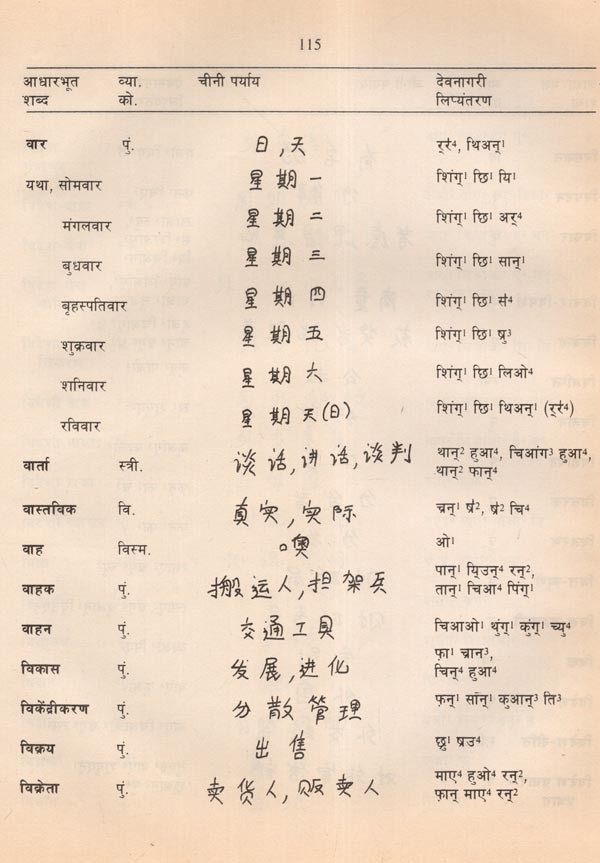 115
आधारभूत व्या. चीनी पर्याय देवनागरी
शब्द को. लिप्यंतरण
वार पुं. 日,天 र्‌र॑⁴, थिअन्¹
यथा, सोमवार 星期一 शिंग्¹ छि¹ यि¹
मंगलवार 星期二 शिंग्¹ छि¹ अर्⁴
बुधवार 星期三 शिंग्¹ छि¹ सान्¹
बृहस्पतिवार 星期四 शिंग्¹ छि¹ स॑⁴
शुक्रवार 星期五 शिंग्¹ छि¹ षु³
शनिवार 星期六 शिंग्¹ छि¹ लिओ⁴
रविवार 星期天(日) शिंग्¹ छि¹ थिअन्¹ (र्‌र॑⁴)
वार्ता स्त्री. 谈话,讲话,谈判 थान्² हुआ⁴, चिआंग³ हुआ⁴,
थान्² फान्⁴
वास्तविक वि. 真实,实际 च्रन्¹ ष॑², ष॑² चि⁴
वाह विस्म. 噢 ओ¹
वाहक पुं. 搬运人,担架兵 पान्¹ यि्उन्⁴ रन्²,
तान्¹ चिआ⁴ पिंग्¹
वाहन पुं. 交通工具 चिआओ¹ थुंग्¹ कुंग्¹ च्यु⁴
विकास पुं. 发展,进化 फ़ा¹ च्रान³,
चिन्⁴ हुआ⁴
विकेंद्रीकरण पुं. 分散管理 फ़न्¹ सांन्¹ कुआन्³ ति³
विक्रय पुं. 出售 छु¹ षउ⁴
विक्रेता पुं. 卖货人,贩卖人 माए⁴ हुओ⁴ रन्²,
फ़ान् माए⁴ रन्²